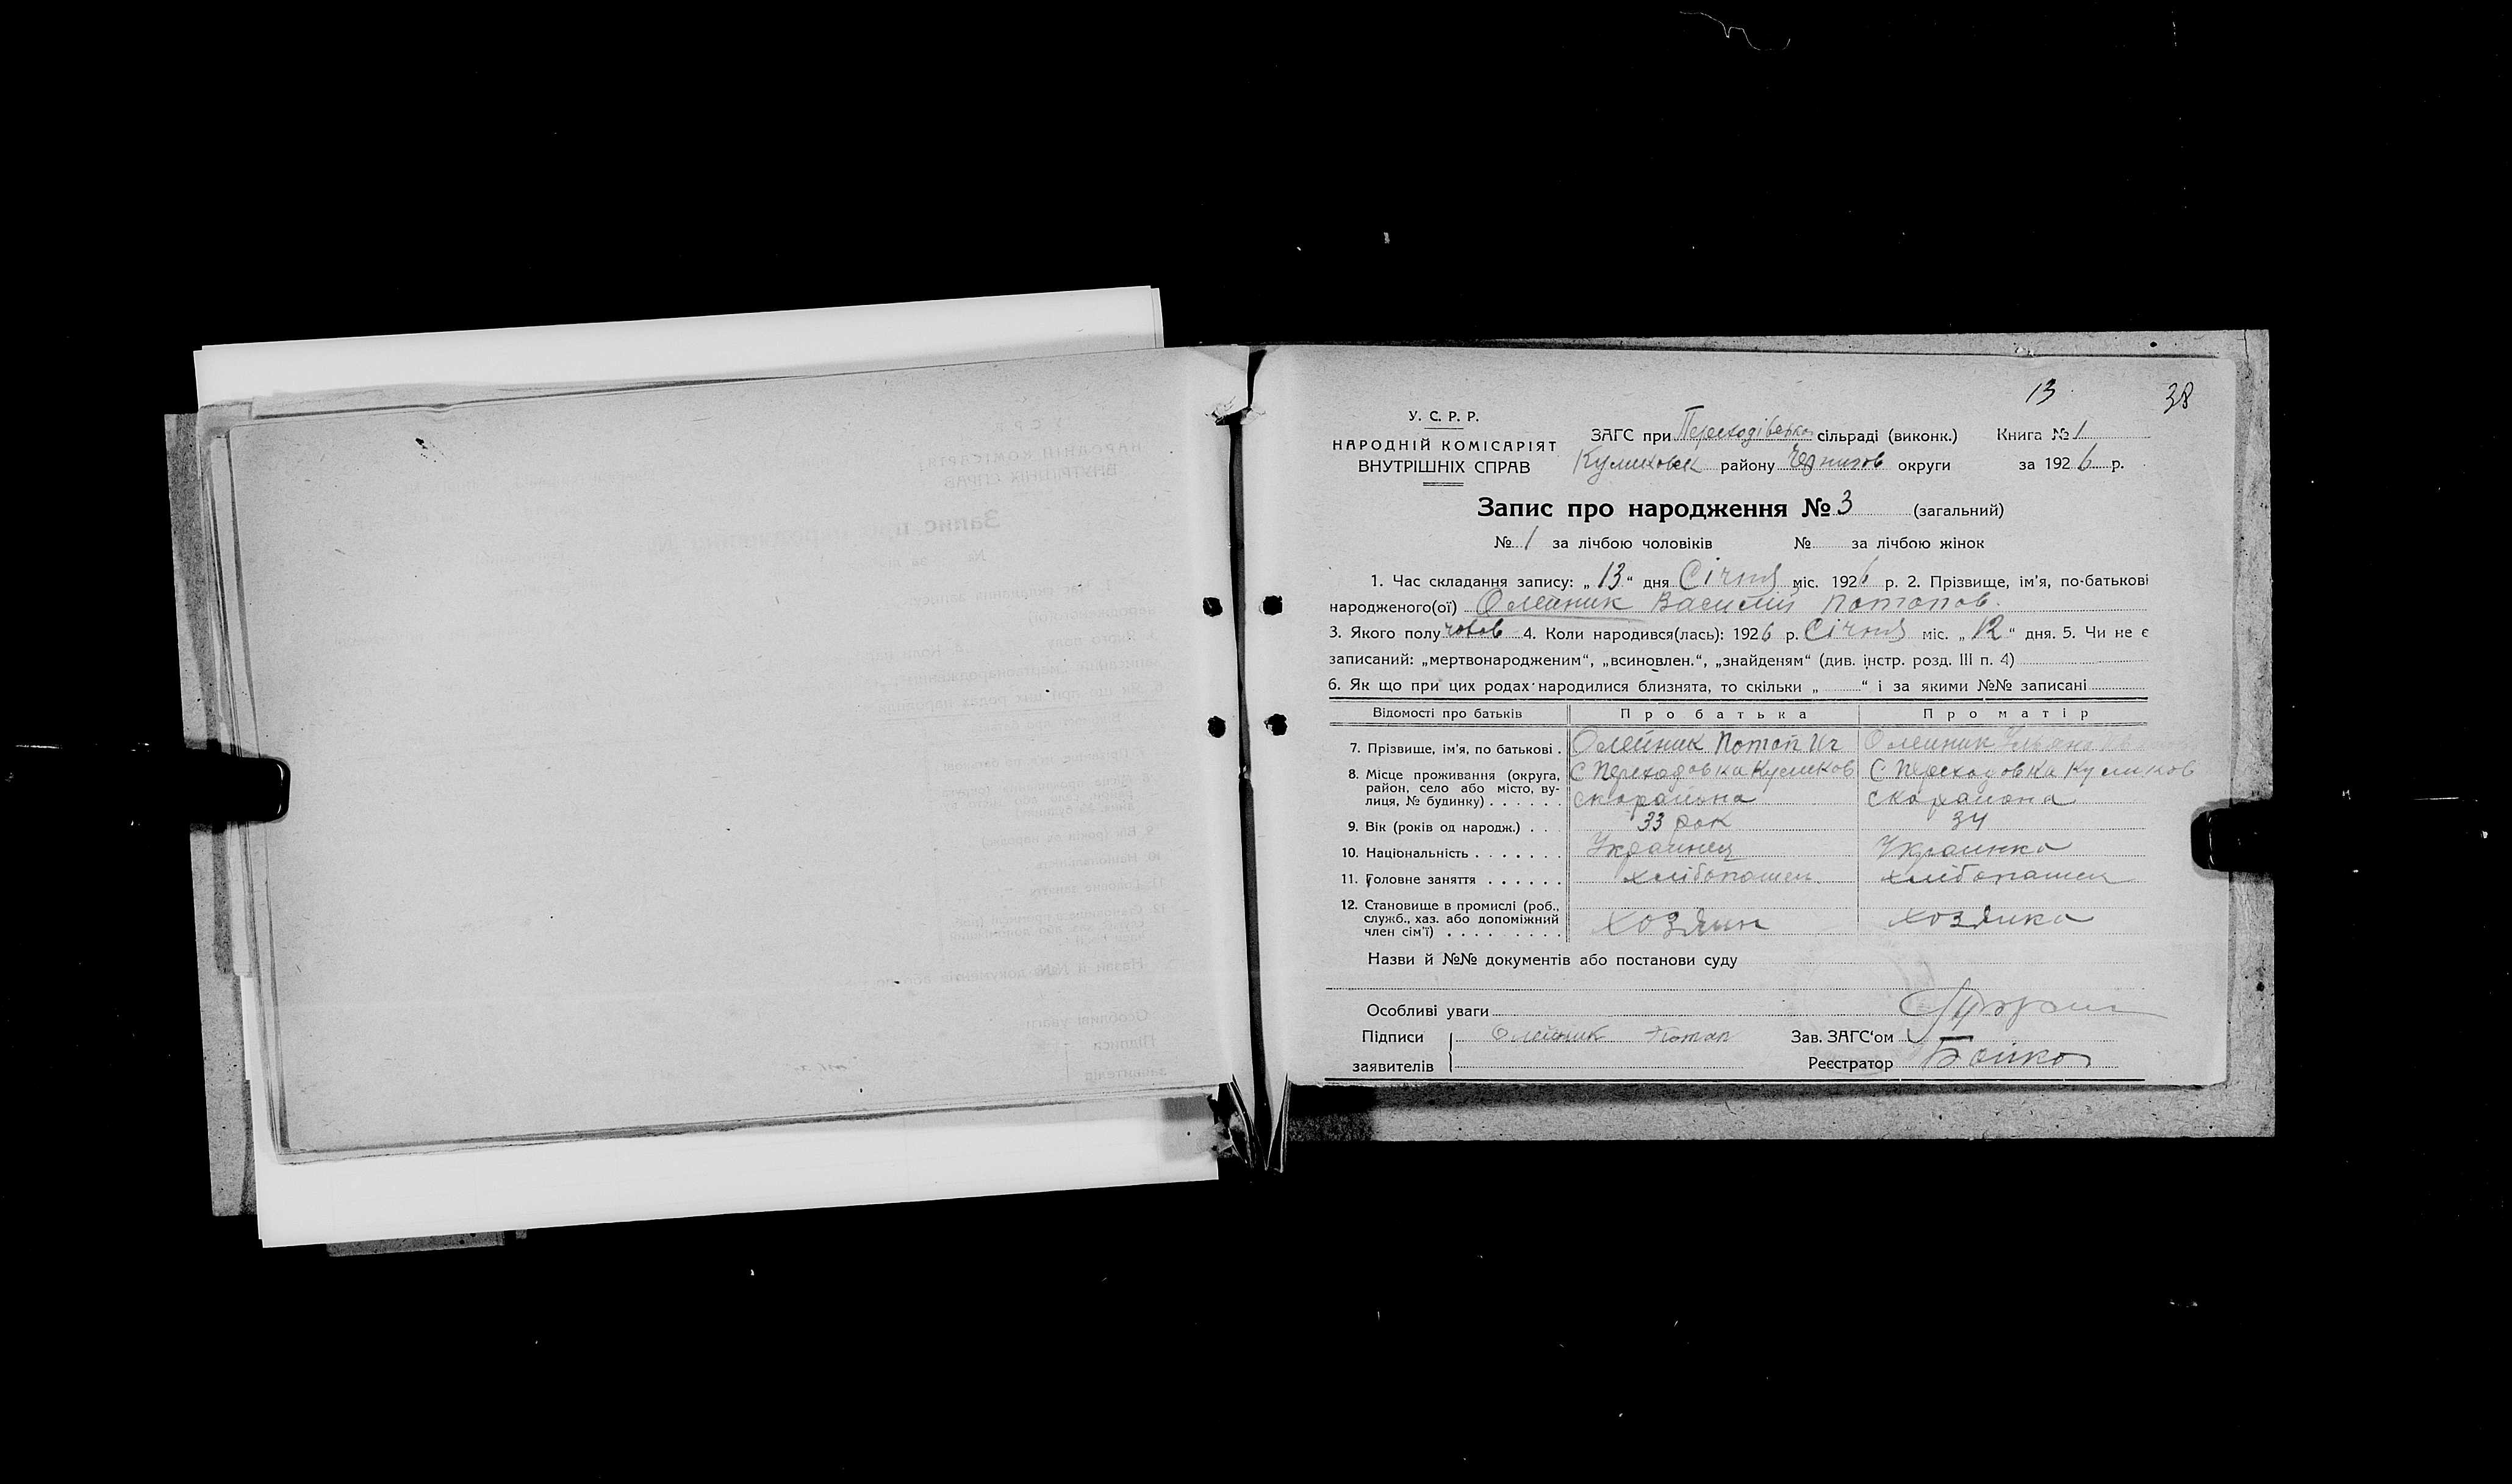 13
38
У. С. Р. Р.
НАРОДНІЙ КОМІСАРІЯТ
ВНУТРІШНІХ СПРАВ
ЗАГС при Переходівська сільраді (виконк.) Книга № 1
Куликовск району Чернигов округи за 1926 р.
Запис про народження № 3 (загальний)
№ 1 за лічбою чоловіків № за лічбою жінок
1. Час складання запису: „13“ дня Січня міс. 1926 р. 2. Прізвище, ім'я, по-батькові
народженого(ої) Олейник Василий Потапов.
3. Якого полу чолов 4. Коли народився(лась): 1926 р. Січня міс. „12“ дня. 5. Чи не є
записаний: „мертвонародженим“, „всиновлен.“, „знайденям“ (див. інстр. розд. III п. 4)
6. Як що при цих родах народилися близнята, то скільки „ “ і за якими №№ записані
Відомості про батьків Про батька Про матір
7. Прізвище, ім'я, по батькові . Олейник Потап Иг Олейник Ульяна
8. Місце проживання (округа, С Переходовка Куликов С Переходовка Куликов
район, село або місто, ву-
лиця, № будинку) . . . . . . ского района ского района
9. Вік (років од народж.) . . 33 рок 34
10. Національність . . . . . . . Украинец Украинка
11. Головне заняття . . . . . . хлібопашец хлібопашец
12. Становище в промислі (роб.,
служб., хаз. або допоміжний Хозяин хозяика
член сім'ї) . . . . . . . . .
Назви й №№ документів або постанови суду
Особливі уваги
Підписи Олейник Потап Зав. ЗАГС'ом
заявителів Реєстратор Бойко